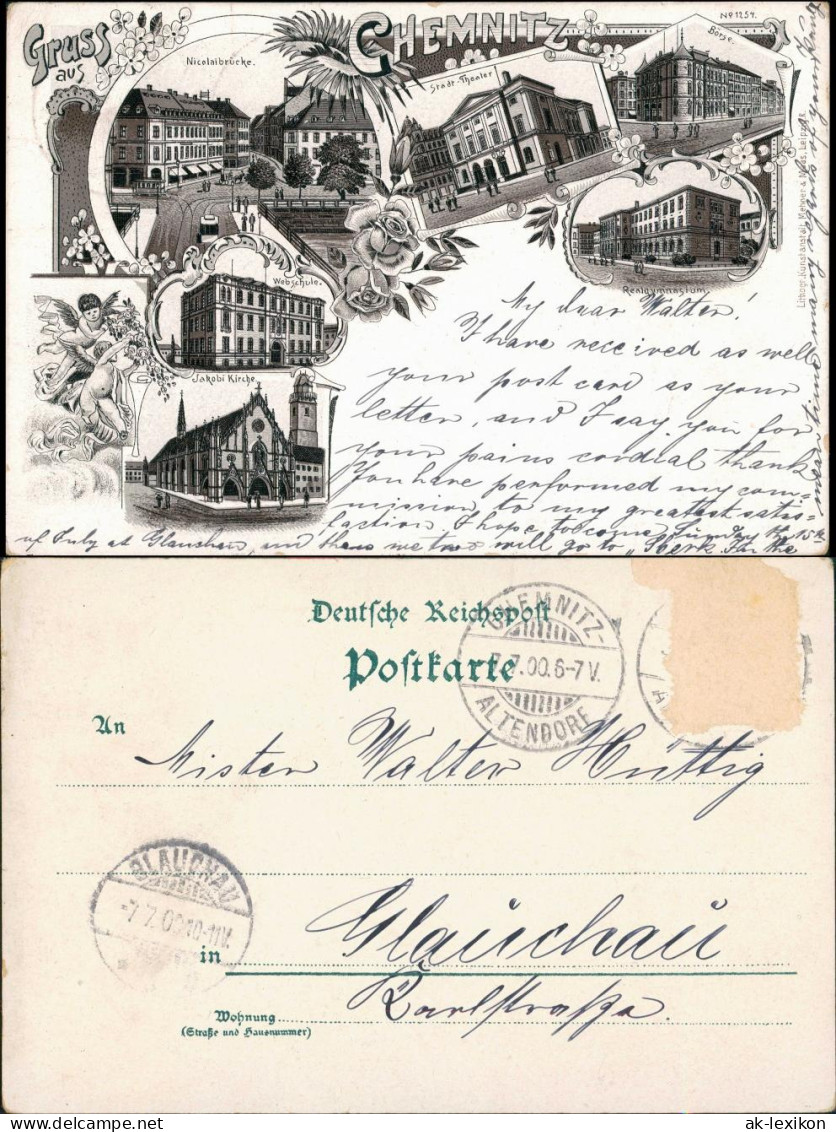 Gruss
aus
CHEMNITZ
No 1254.
Nicolaibrücke.
Stadt-Theater
Börse.
Webschule.
Realgymnasium.
Jakobi Kirche
Lithogr. Kunstanstalt Mehner & Maas, Leipzig.
My dear Walter!
I have received as well
your post card as your
letter, and I say you for
your pains cordial thank
You have performed my com-
mission to my greatest satis-
faction. I hope to come Sunday the 15th
of July at Glauchau, and then we two will go to „ For the
mean time many regards of your
Deutsche Reichspost
Postkarte
CHEMNITZ-
7.7.00.6-7V.
ALTENDORF
An
Mister Walter Hüttig
GLAUCHAU
-7.7.00 10-11V.
in
Glauchau
Karlstraße.
Wohnung
(Straße und Hausnummer)
© ak-lexikon